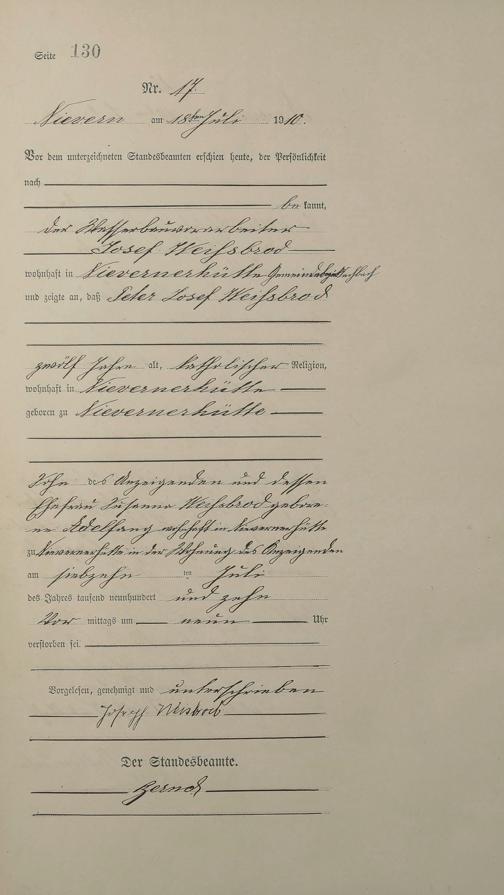 Seite 130
Nr. 17.
Nievern am 18ten Juli 1910.
Vor dem unterzeichneten Standesbeamten erschien heute, der Persönlichkeit
nach
be kannt,
der Wasserbauvorarbeiter
Josef Weißbrod
wohnhaft in Nievernerhütte Gemeindebezirk Fachbach
und zeigte an, daß Peter Josef Weißbrod
zwölf Jahre alt, katholischer Religion,
wohnhaft in Nievernerhütte
geboren zu Nievernerhütte
Sohn des Anzeigenden und dessen
Ehefrau Susanna Weißbrod gebore-
ne Adelfang wohnhaft in Nievernerhütte
zu Nievernerhütte in der Wohnung des Anzeigenden
am siebzehn ten Juli
des Jahres tausend neunhundert und zehn
Vor mittags um neun Uhr
verstorben sei.
Vorgelesen, genehmigt und unterschrieben
Joseph
Der Standesbeamte.